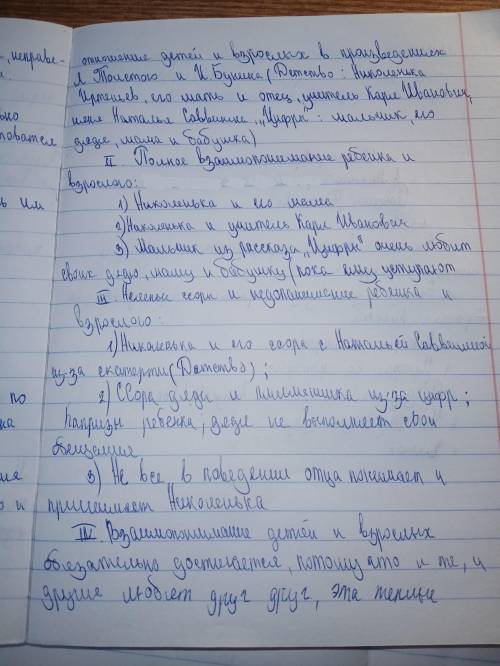 -, неправе-
отношение детей и взрослых в произведениях
Л. Толстого и И. Бунина (Детство: Николенька
Иртеньев, его мать и отец, учитель Карл Иванович,
няня Наталья Саввишна, „Цифры": мальчик, его
дядя, мама и бабушка)
II Полное взаимопонимание ребенка и
взрослого:
1) Николенька и его мама
2) Николенька и учитель Карл Иванович
3) Мальчик из рассказа „Цифры" очень любит
своих дядю, маму и бабушку (пока ему уступают
III Нелепые ссоры и недопонимание ребенка и
взрослого:
1) Николенька и его ссора с Натальей Саввишной
из-за скатерти (Детство);
2) Ссора дяди и племянника из-за цифр;
Капризы ребенка, дядя не выполняет свои
обещания
3) Не все в поведении отца понимает и
принимает Николенька
IV. Взаимопонимание детей и взрослых
обязательно достигается, потому что и те, и
другие любят друг друг, эта